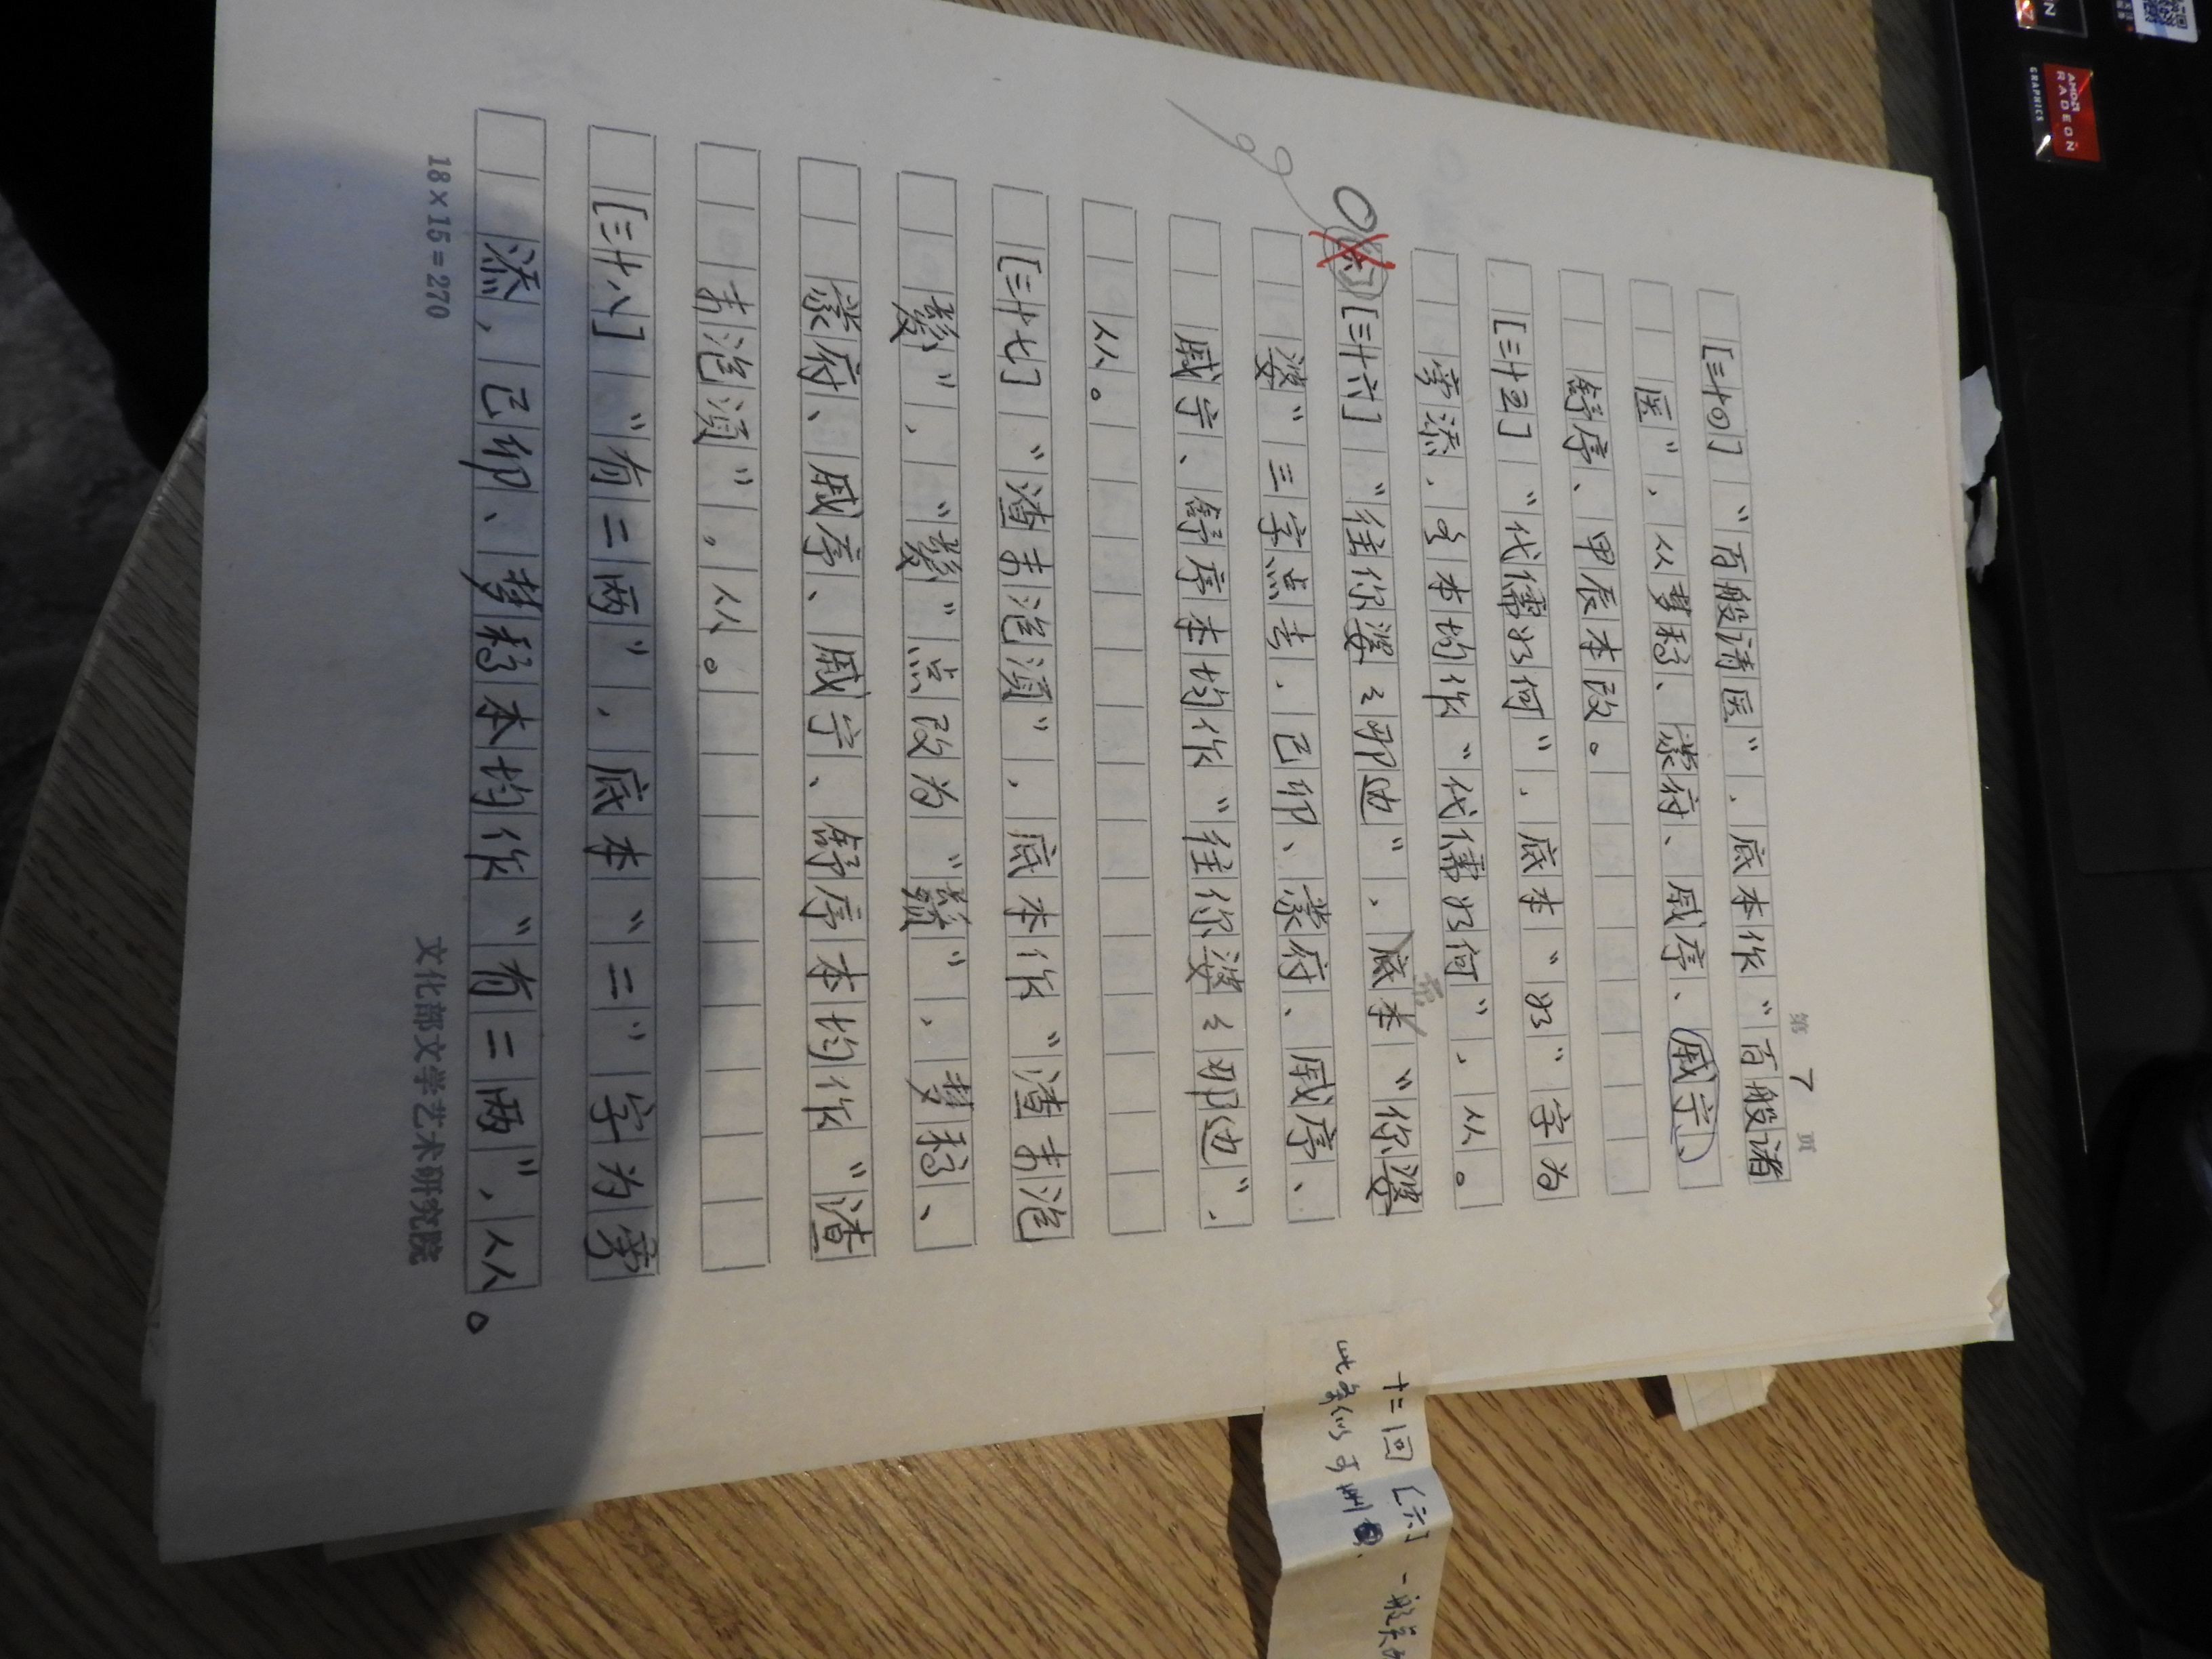 第 7 页
[三十四]“百般请医”，底本作“百般诸
医”，从梦稿、蒙府、戚序、戚宁、
舒序、甲辰本改。
[三十五]“代儒如何”，底本“如”字为
旁添，各本均作“代儒如何”，从。
[三十六]“往你婆〻那边”，底本“你婆
婆”三字点去，己卯、蒙府、戚序、
戚宁、舒序本均作“往你婆〻那边”，
从。
[三十七]“渣末泡须”，底本作“渣末泡
”，“”点改为“”，梦稿、
蒙府、戚序、戚宁、舒序本均作“渣
末泡须”，从。
[三十八]“有二两”，底本“二”字为旁
添，己卯、梦稿本均作“有二两”，从。
18×15=270
文化部文学艺术研究院
十二回 [六] 一般
此条似可删
AMD
RADEON
GRAPHICS